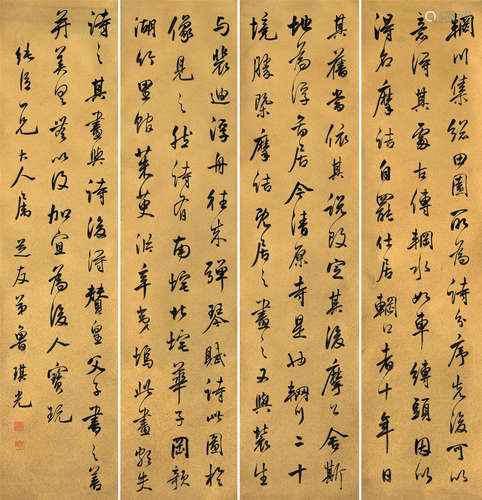 輞川集總田園所為詩分序先後可以
意得其處古傳輞水如車縛頭因以
得名摩詰自罷仕居輞口者十年日
其舊當依其說改定其後摩公舍斯
地為浮圖居今清原寺是也輞川二十
境勝槩摩詰既居之畫之又與裴生
與裴迪浮舟往來彈琴賦詩此圖想
像見之然詩有南垞北垞華子岡欹
湖竹里館茱萸沜辛夷塢此畫頗失
詩之其畫與詩後得贊皇父子書之善
并美具無以復加宜為後人寶玩
仁兄大人屬 芝友弟魯琪光